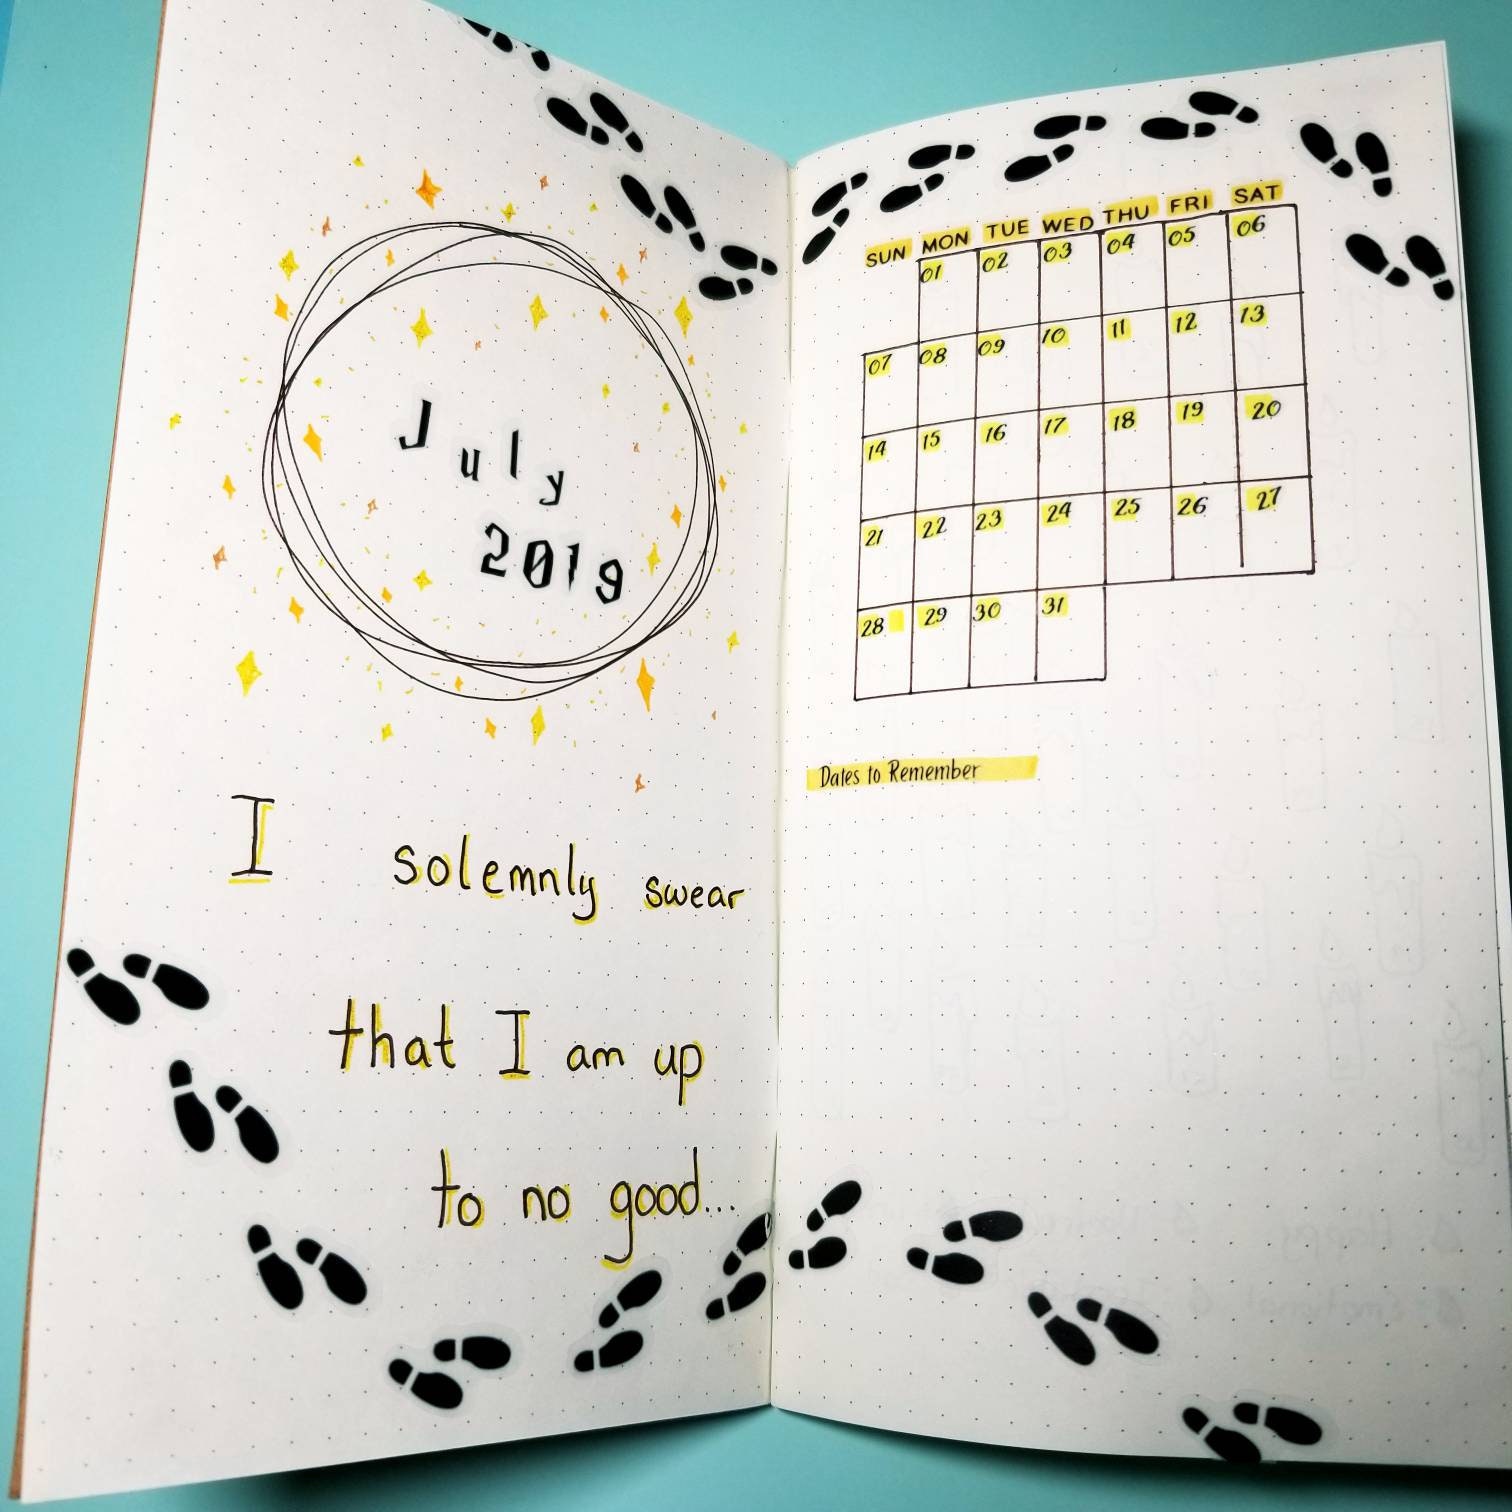 July
2019
I solemnly swear
that I am up
to no good...
SUN MON TUE WED THU FRI SAT
01 02 03 04 05 06
07 08 09 10 11 12 13
14 15 16 17 18 19 20
21 22 23 24 25 26 27
28 29 30 31
Dates to Remember